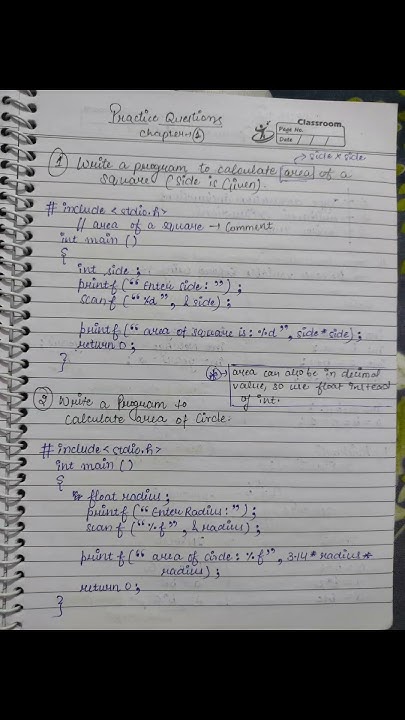 Practice Questions
chapter-1
Classroom
Page No.
Date / /
→ side × side
① Write a program to calculate [area] of a
square (side is Given).
# include <stdio.h>
// area of a square → Comment
int main ()
{
int side ;
printf (“ Enter side : ”) ;
scanf (“ %d ”, & side) ;
printf (“ area of square is : %d ”, side * side) ;
return 0 ;
}
→ area can also be in decimal
value, so use float instead
of int.
② Write a Program to
calculate area of Circle.
# include <stdio.h>
int main ()
{
float radius ;
printf (“ Enter Radius : ”) ;
scanf (“ %f ”, & radius) ;
printf (“ area of Circle : %f ”, 3.14 * radius *
radius) ;
return 0 ;
}